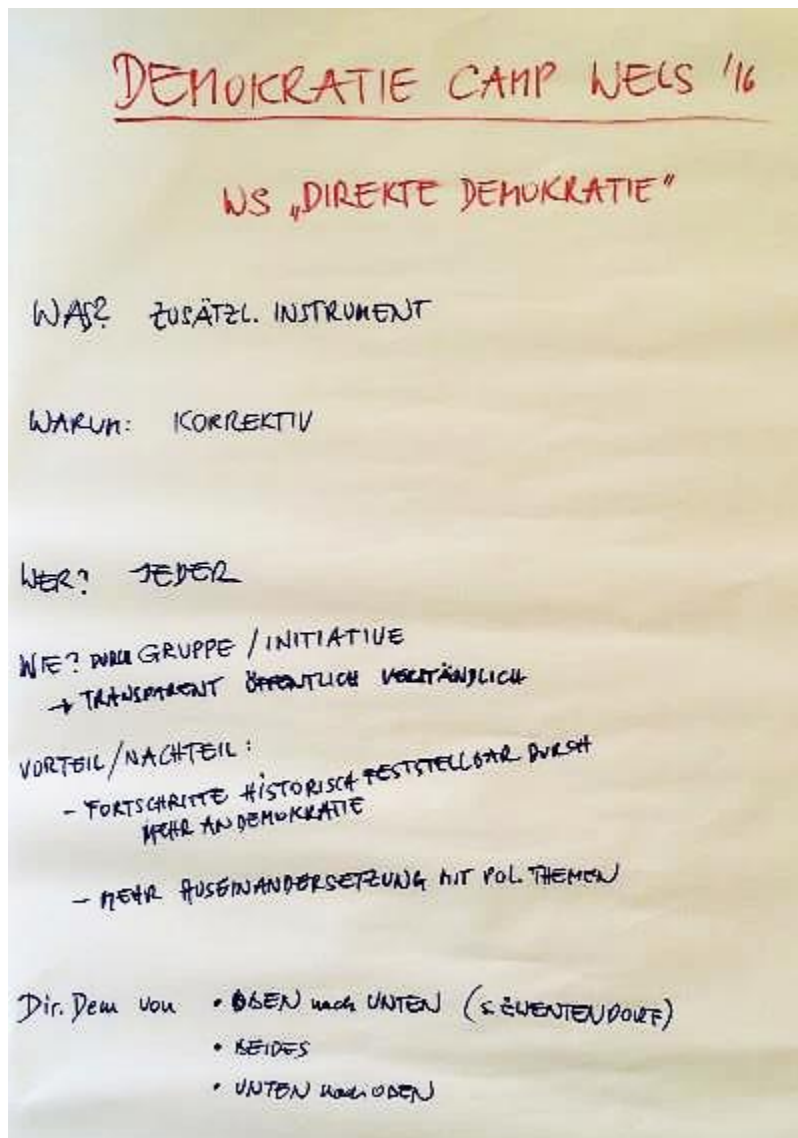 DEMOKRATIE CAMP WELS '16
WS „DIREKTE DEMOKRATIE"
WAS? ZUSÄTZL. INSTRUMENT
WARUM: KORREKTIV
WER? JEDER
WIE? DURCH GRUPPE / INITIATIVE
→ TRANSPARENT ÖFFENTLICH VERSTÄNDLICH
VORTEIL/NACHTEIL:
- FORTSCHRITTE HISTORISCH FESTSTELLBAR DURCH
MEHR AN DEMOKRATIE
- MEHR AUSEINANDERSETZUNG MIT POL. THEMEN
Dir. Dem von • OBEN nach UNTEN (s. ZWENTENDORF)
• BEIDES
• UNTEN nach OBEN